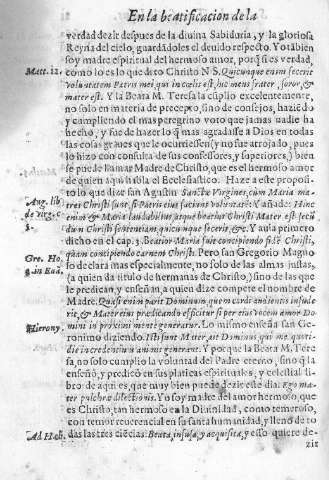 En la beatificacion de la
verdad dezir despues de la diuina Sabiduria, y la gloriosa
Reyna del cielo, guardãdoles el deuido respecto. Yo tãbiẽ
soy madre espiritual del hermoso amor, porq̃ si es verdad,
Matt. 12.
como lo es lo que dixo Christo N S. Quicunque enim fecerit
voluntatem Patris mei qui in cœlis est, hic meus frater, soror, &
mater est. Y la Beata M. Teresa la cũplio excelentemente,
no solo en materia de precepto, sino de consejos, haziẽdo
y cumpliendo el mas peregrino voto que jamas nadie ha
hecho, y fue de hazer lo q̃ mas agradasse a Dios en todas
las cosas graues que le ocurriessen (y no fue arrojo, pues
lo hizo con consulta de sus confessores, y superiores,) biẽ
se puede llamar Madre de Christo, que es el hermoso amor
de quien aqui habla el Ecclesiastico. Haze a este proposi-
Aug. lib.
to lo que dize san Agustin Sanctæ Virgines, cum Maria ma-
de virg. c.
tres Christi sunt, si Patris eius faciunt voluntatẽ: Y añade: Hinc
5.
enim & Maria laudabilius atque beatius Christi Mater est secũ
dum Christi sententiam, quicunque fecerit, &c. Y auia primero
dicho en el cap. 3. Beatior Maria fuit concipiendo fidẽ Christi,
Gre. Ho.
quam concipiendo carnem Christi. Pero san Gregorio Magno
lo declara mas especialmente, no solo de las almas justas,
(a quien da titulo de hermanas de Christo,) sino de las que
le predican, y enseñan, a quien dize compete el nombre de
Madre. Quasi enim parit Dominum, quem cordi audientis infude-
rit, & Mater eius prædicando efficitur si per eius vocem amor Do
Hierony.
mini in proximi mente generatur. Lo mismo enseña san Ge-
ronimo diziendo. Isti sunt Mater, ait Dominus qui me quoti-
die in credentium animis generant. Y porque la Beata M. Tere
sa, no solo cumplio la voluntad del Padre eterno, sino q̃ la
enseñó, y predicó en sus platicas espirituales, y celestial li-
bro de aqui es, que muy bien puede dezir este dia. Ego ma-
ter pulchræ dilectionis. Yo soy madre del amor hermoso, que
es Christo, tan hermoso en la Diuinidad, como temeroso,
con temor reuerencial en su santa humanidad, y lleno de to
das las tres ciẽcias. Beata, infusa, y acquisita, y esso quiere de-
zir